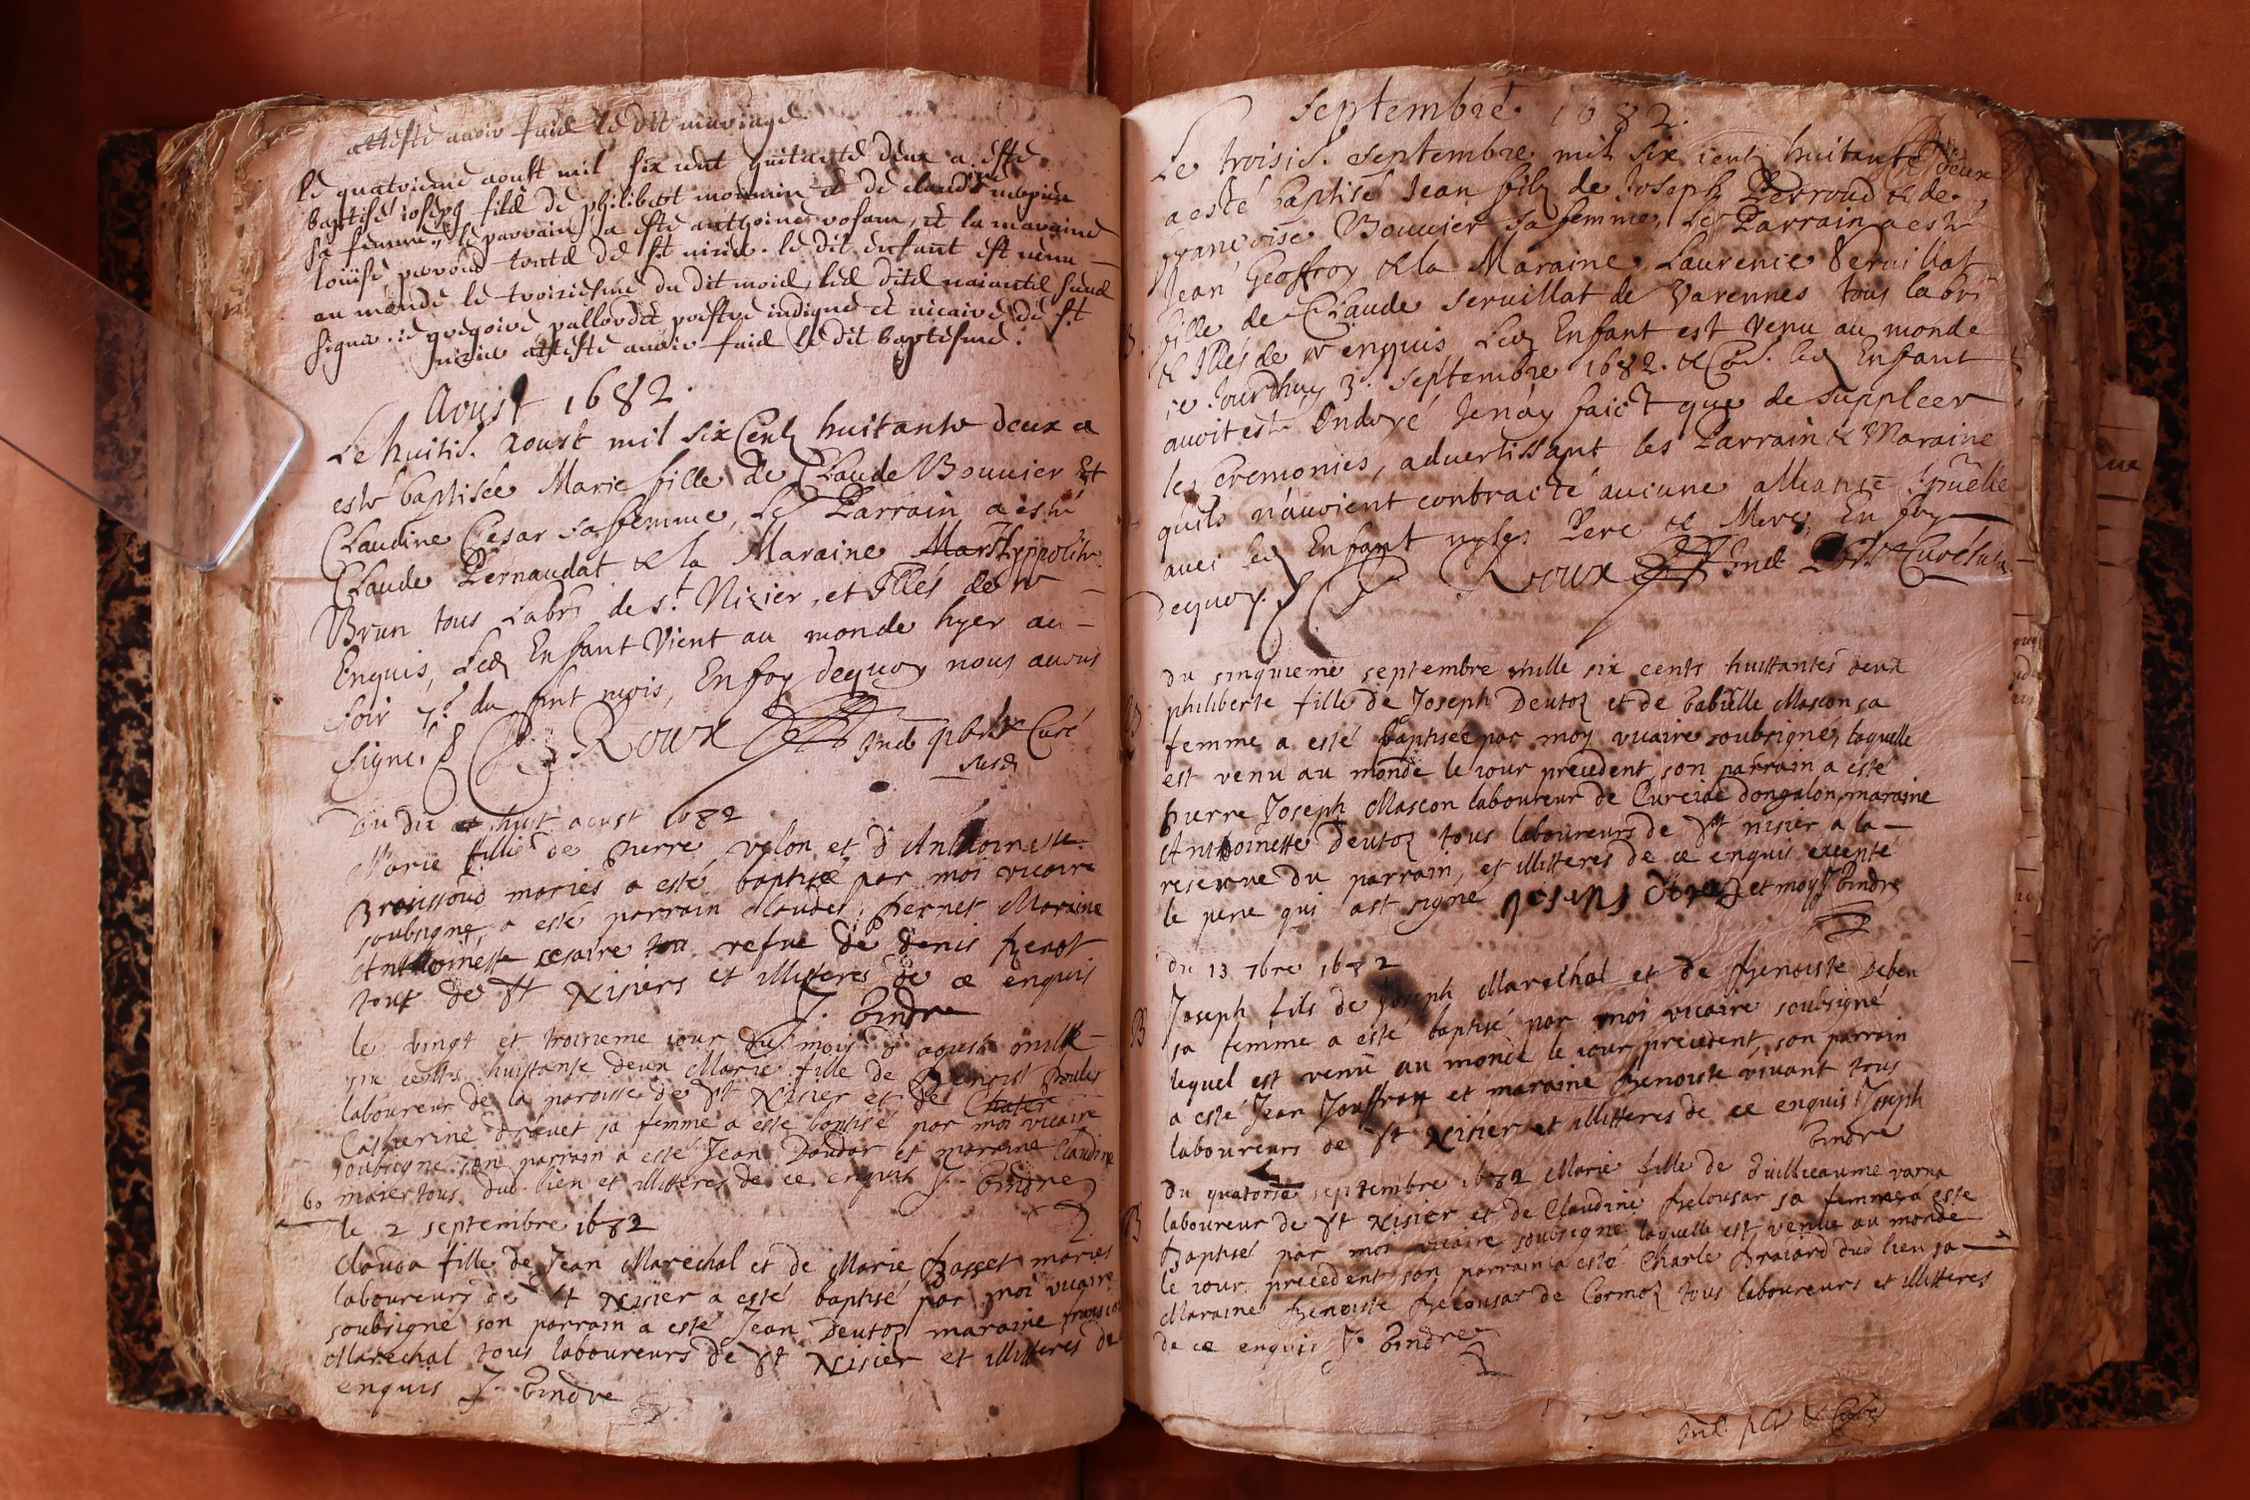 atteste avoir faict le dit mariage
le quatrieme aoust mil six cent huitante deux a este
baptisé joseph filz de philibert monnin et de claudine
sa femme, le parrain a este anthoine et la maraine
louise tante de st nizie. le dit enfant est venu
au monde le troiziesme du dit mois, les dites naiantes sceus
signer. ie gregoire pallordet prestre indigne et vicaire de st
nizie atteste avoir faict le dit baptesme.
Aoust 1682.
Le huitie. Aoust mil six Centz huitante deux a
esté baptisée Marie fille de Claude Bouvier Et
Claudine Cesar sa femme, Le Parrain a esté
Claude Pernaudat & la Maraine hyppolite
Brun tous Labrs de st. Nizier, et Illes de ce
Enquis, Led Enfant Vient au monde hyer au -
soir 7e. du sint mois, En foy dequoy nous avons
signé. Roux Ind pbr Curé
susd
Du dit huit aoust 1682
Marie fille de pierre volon et d'Anthoinette
Broissoud mariés a esté baptisé par moi vicaire
soubsigné, a esté parrain Claude pernet Maraine
Anthoinette cesaire refue de denis benot
tout de st Nisiers et illiteres de ce enquis
J. Bindre
le vingt et troisieme iour du mois d'aoust mille
six cents huittante deux Marie fille de Benoist poulet
laboureur de la paroisse de st Nisier et de
Catherine drevet sa femme a esté baptisé par moi vicaire
soubsigné son parrain a esté Jean Dondar et maraine Claudine
maier tous dud. lieu et illitteres de ce enquis J. Bindre
60
le 2 septembre 1682
Clauda fille de Jean Marechal et de Marie basset mariés
laboureurs de st Nisier a esté baptisé par moi vicaire
soubsigné son parrain a esté Jean Deutoz maraine françoise
Marechal tous laboureurs de st Nisier et illitteres de
enquis J. Bindre
Septembre 1682.
Le troisie. septembre mil six centz huitante deux
a esté baptisé Jean filz de Joseph Perroud & de
françoise Bouvier sa femme, Le Parrain a esté
Jean Geoffroy & la Maraine Laurence Servillat
fille de Claude Servillat de Varennes tous labrs
& Illes de ce enquis, Led Enfant est Venu au monde
ce Jourdhuy 3e. Septembre 1682. & Co͠e. led Enfant
avoit esté Ondoyé Je n'ay faict que de suppleer
les Ceremonies, advertissant les Parrain & Maraine
quils n'avoient contracté aucune alliance spũelle
avec led Enfant ny les Pere & Mere, En foy
dequoy. Roux Ind Pbr Curé susd
B
du cinquieme septembre mille six cents huittantes deux
philiberte fille de Joseph Deutoz et de babielle Mascon sa
femme a esté baptisée par moy vicaire soubsigné, laquelle
est venu au monde le iour precedent, son parrain a esté
pierre Joseph Mascon laboureur de Curciat dongalon, maraine
Anthoinette Deutoz tous laboureurs de st nisier a la
reserve du parrain, et illitteres de ce enquis excepté
le pere qui ast signé et moy J Bindre
du 13 7bre 1682
B
Joseph fils de Joseph Marechal et de benoiste deben
sa femme a esté baptisé par moi vicaire soubsigné
lequel est venu au monde le iour precedent, son parrain
a esté Jean Jouffray et maraine benoiste vivant tous
laboureurs de st Nisier et illitteres de ce enquis Joseph
Bindre
B
du quatorse septembre 1682 Marie fille de Guillieaume varna
laboureur de st Nisier et de Claudine belousar sa femme a esté
baptisé par moi vicaire soubsigné laquelle est venue au monde
le iour precedent son parrain a esté Charle Braiard dud lieu sa
Maraine benoiste belousar de Cormoz tous laboureurs et illitteres
de ce enquis J. Bindre